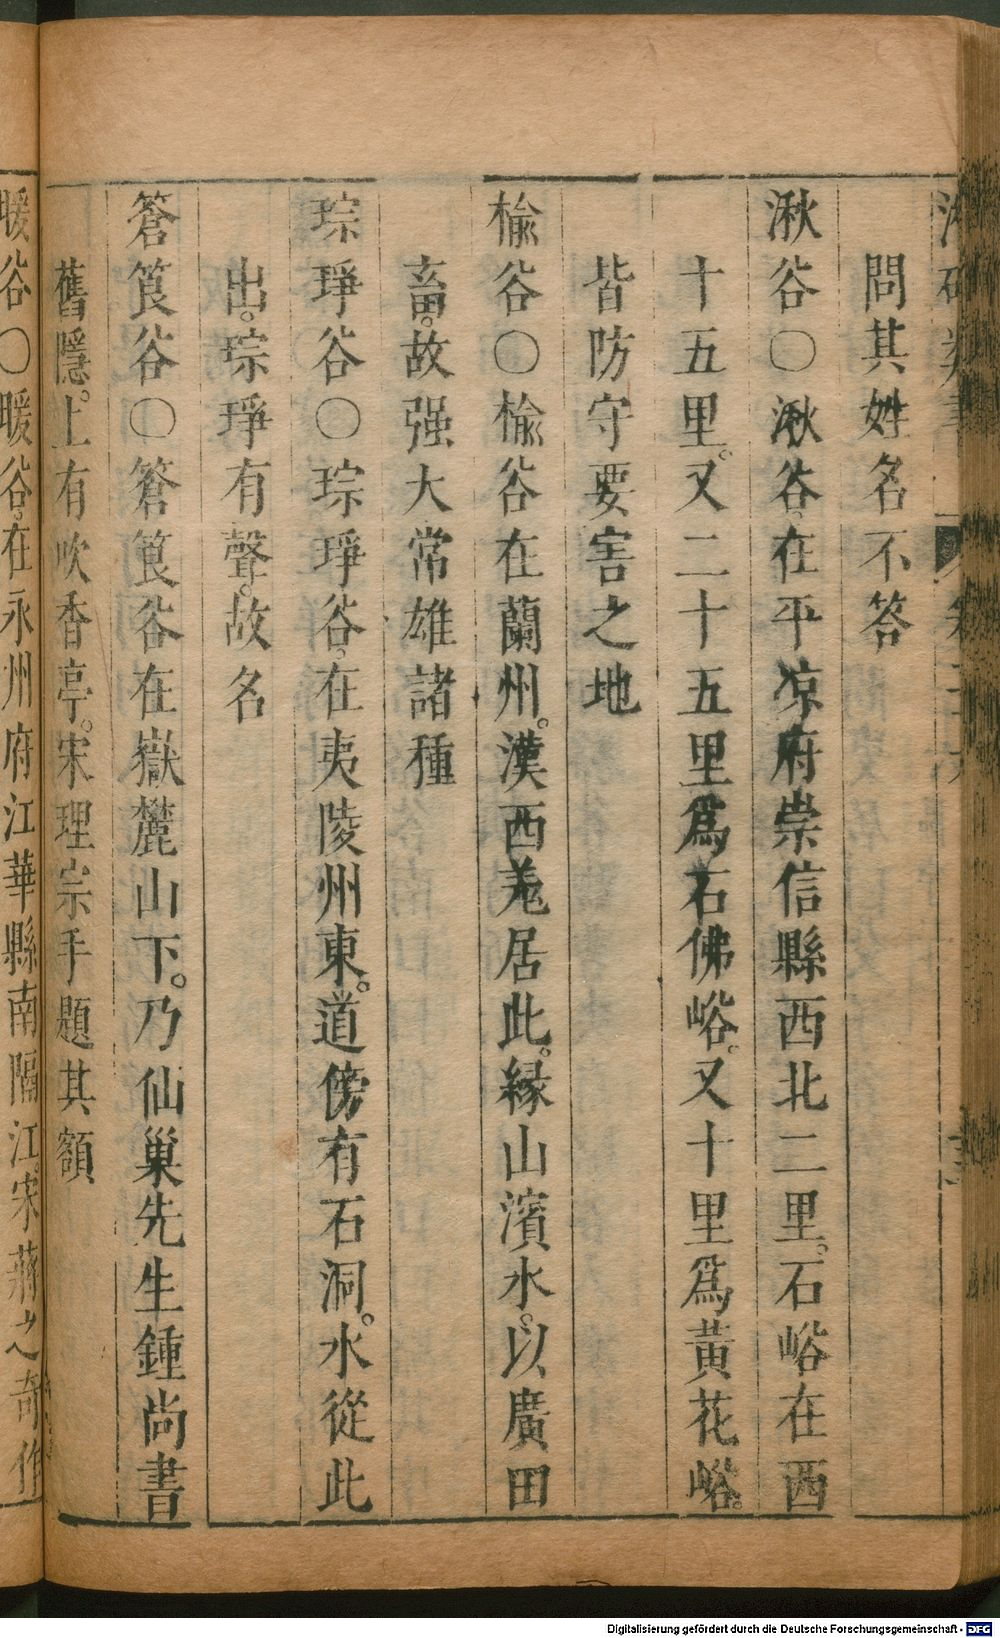 問其姓名不答
湫谷〇湫谷在平凉府崇信縣西北二里。石峪在西
十五里。又二十五里爲石佛峪。又十里爲黃花峪。
皆防守要害之地
榆谷〇榆谷在蘭州。漢西羌居此。緣山濱水。以廣田
畜。故强大常雄諸種
琮琤谷〇琮琤谷在夷陵州東。道傍有石洞。水從此
出。琮琤有聲。故名
篬筤谷〇篬筤谷在嶽麓山下。乃仙巢先生鍾尚書
舊隱。上有吹香亭。宋理宗手題其額
暖谷〇暖谷。在永州府江華縣南隔江。宋蔣之奇作
Digitalisierung gefördert durch die Deutsche Forschungsgemeinschaft - DFG